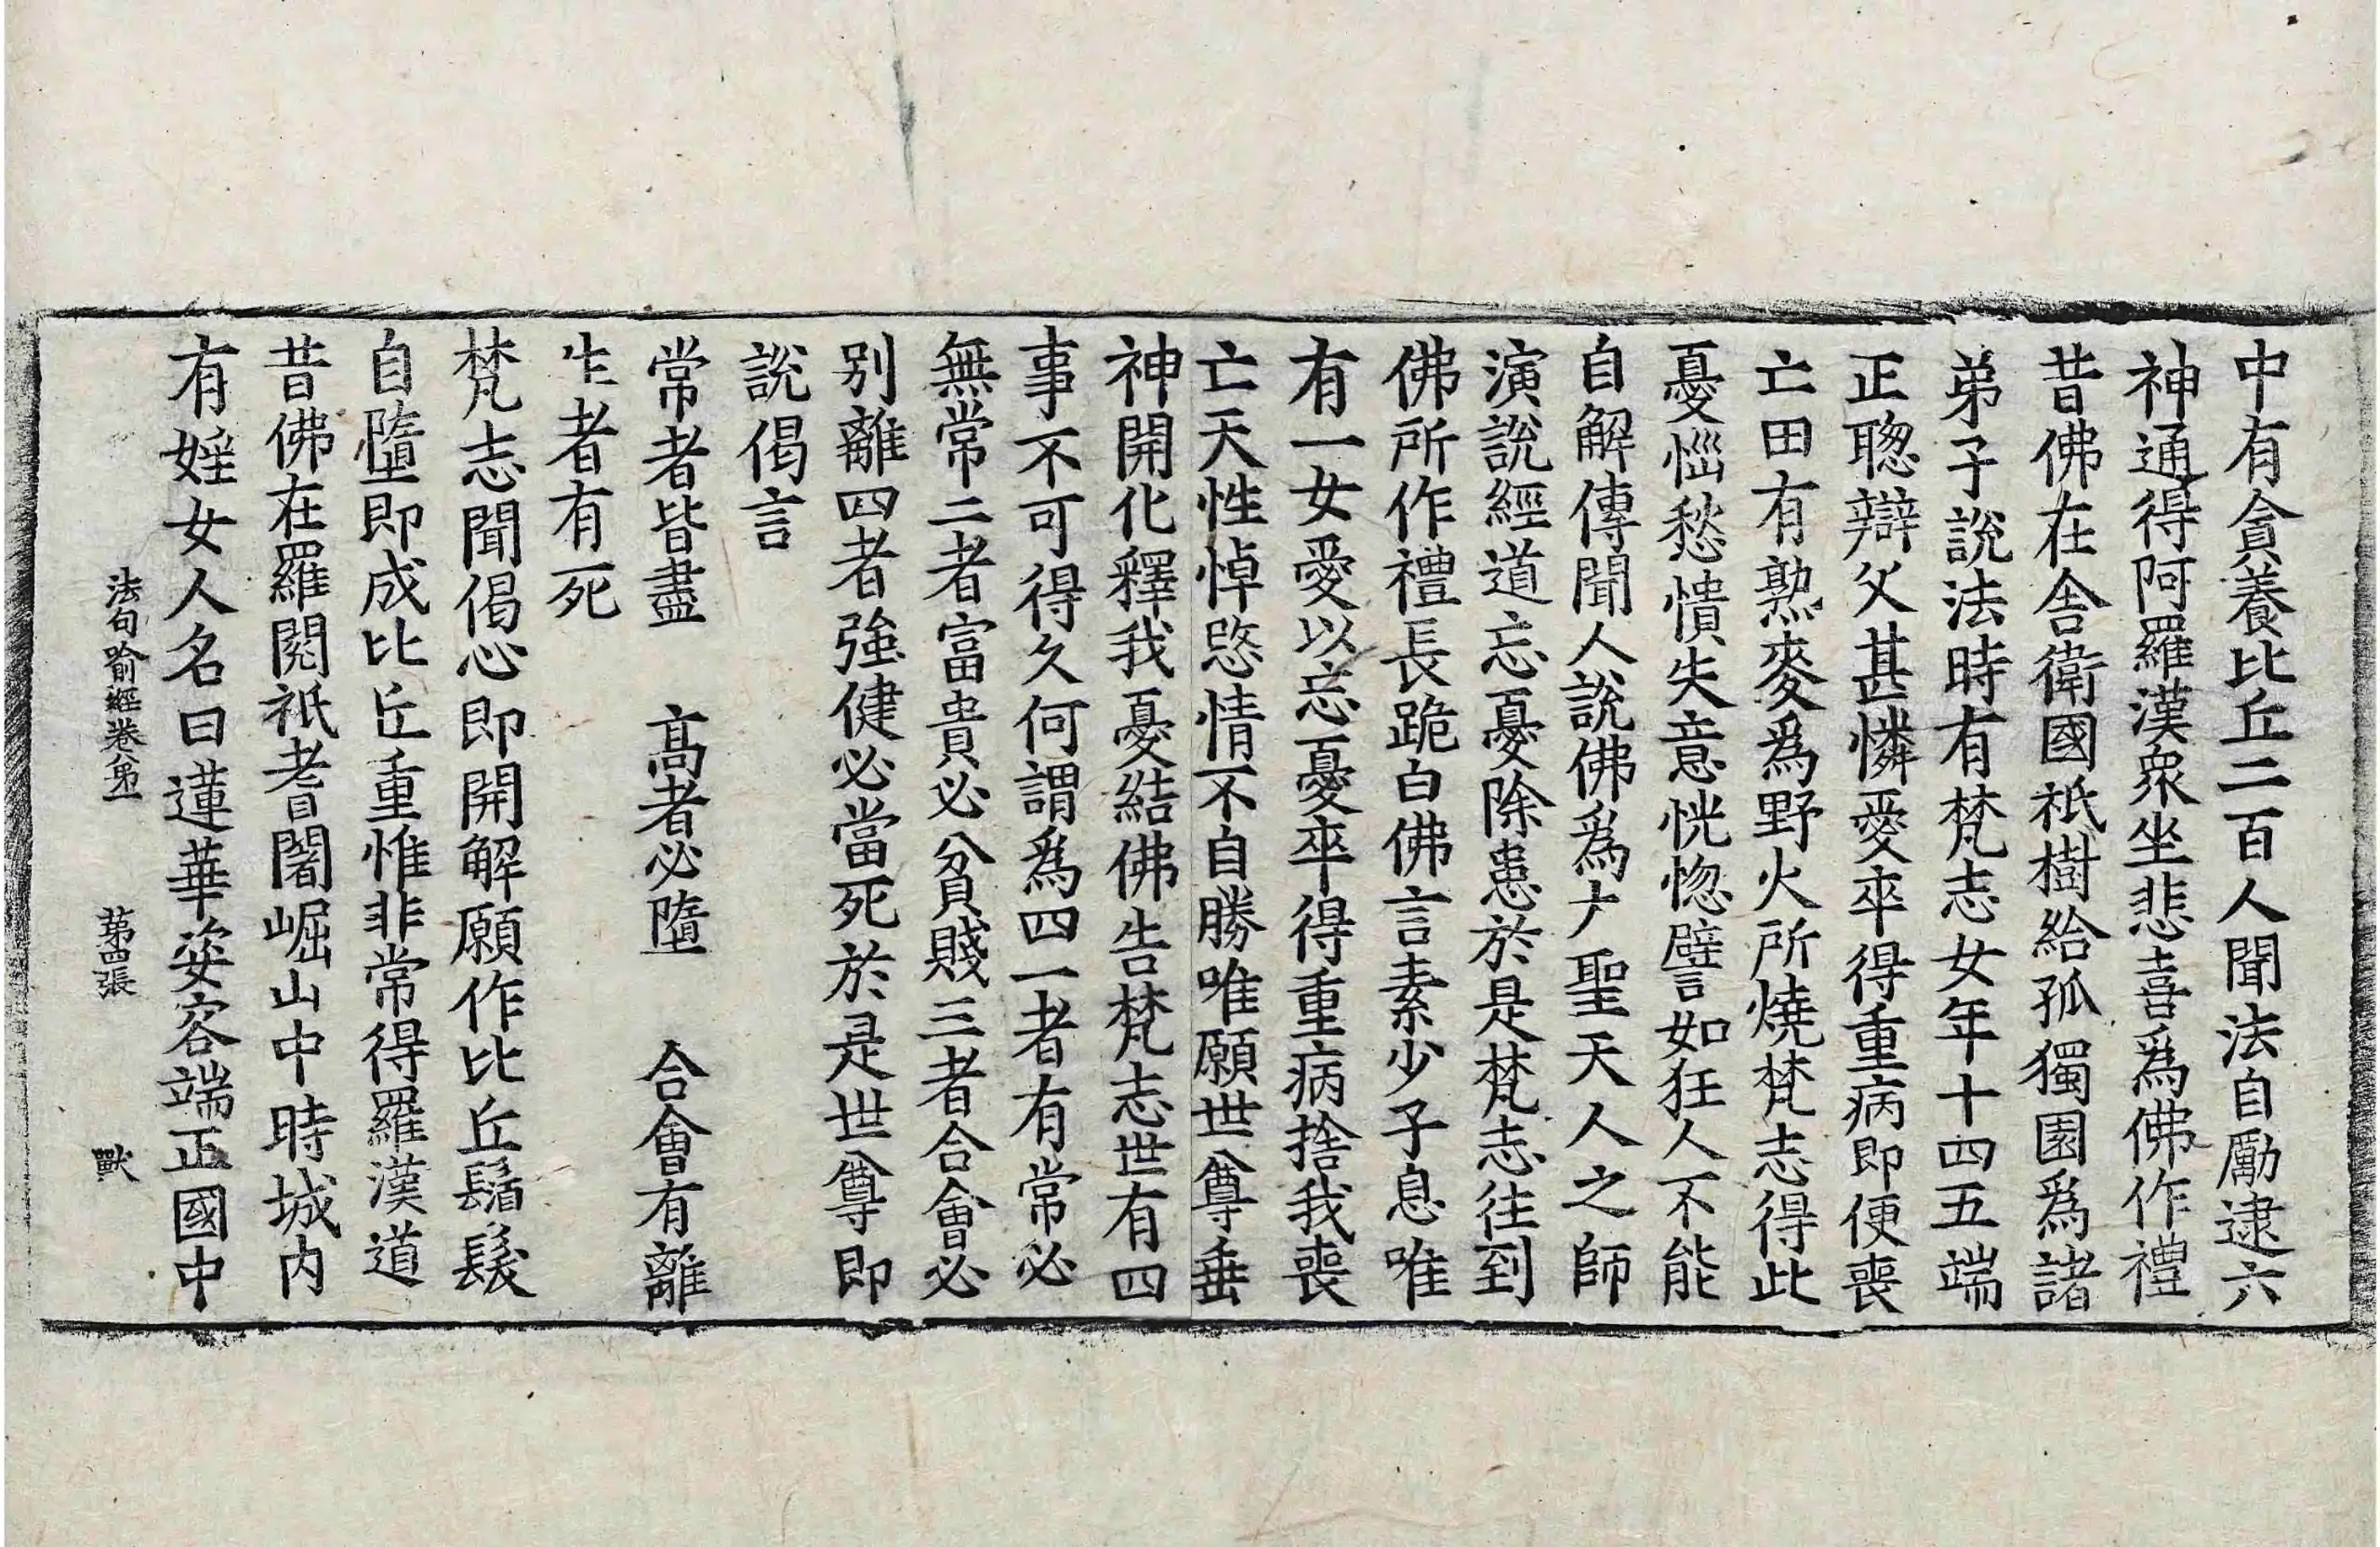 中有貪養比丘二百人聞法自勵逮六
神通得阿羅漢衆坐悲喜爲佛作禮
昔佛在舍衛國祇樹給孤獨園爲諸
弟子說法時有梵志女年十四五端
正聦辯父甚憐愛卒得重病即便喪
亡田有熟麥爲野火所燒梵志得此
憂惱愁憒失意恍惚譬如狂人不能
自解傳聞人說佛爲大聖天人之師
演說經道忘憂除患於是梵志往到
佛所作禮長跪白佛言素少子息唯
有一女愛以忘憂卒得重病捨我喪
亡天性悼愍情不自勝唯願世尊垂
神開化釋我憂結佛告梵志世有四
事不可得久何謂爲四一者有常必
無常二者富貴必貧賤三者合會必
別離四者強健必當死於是世尊即
說偈言
常者皆盡　髙者必墮　合會有離
生者有死
梵志聞偈心即開解願作比丘鬚髮
自墮即成比丘重惟非常得羅漢道
昔佛在羅閱祇耆闍崛山中時城内
有婬女人名曰蓮華姿容端正國中
法句喻經卷第一　第四張　獸